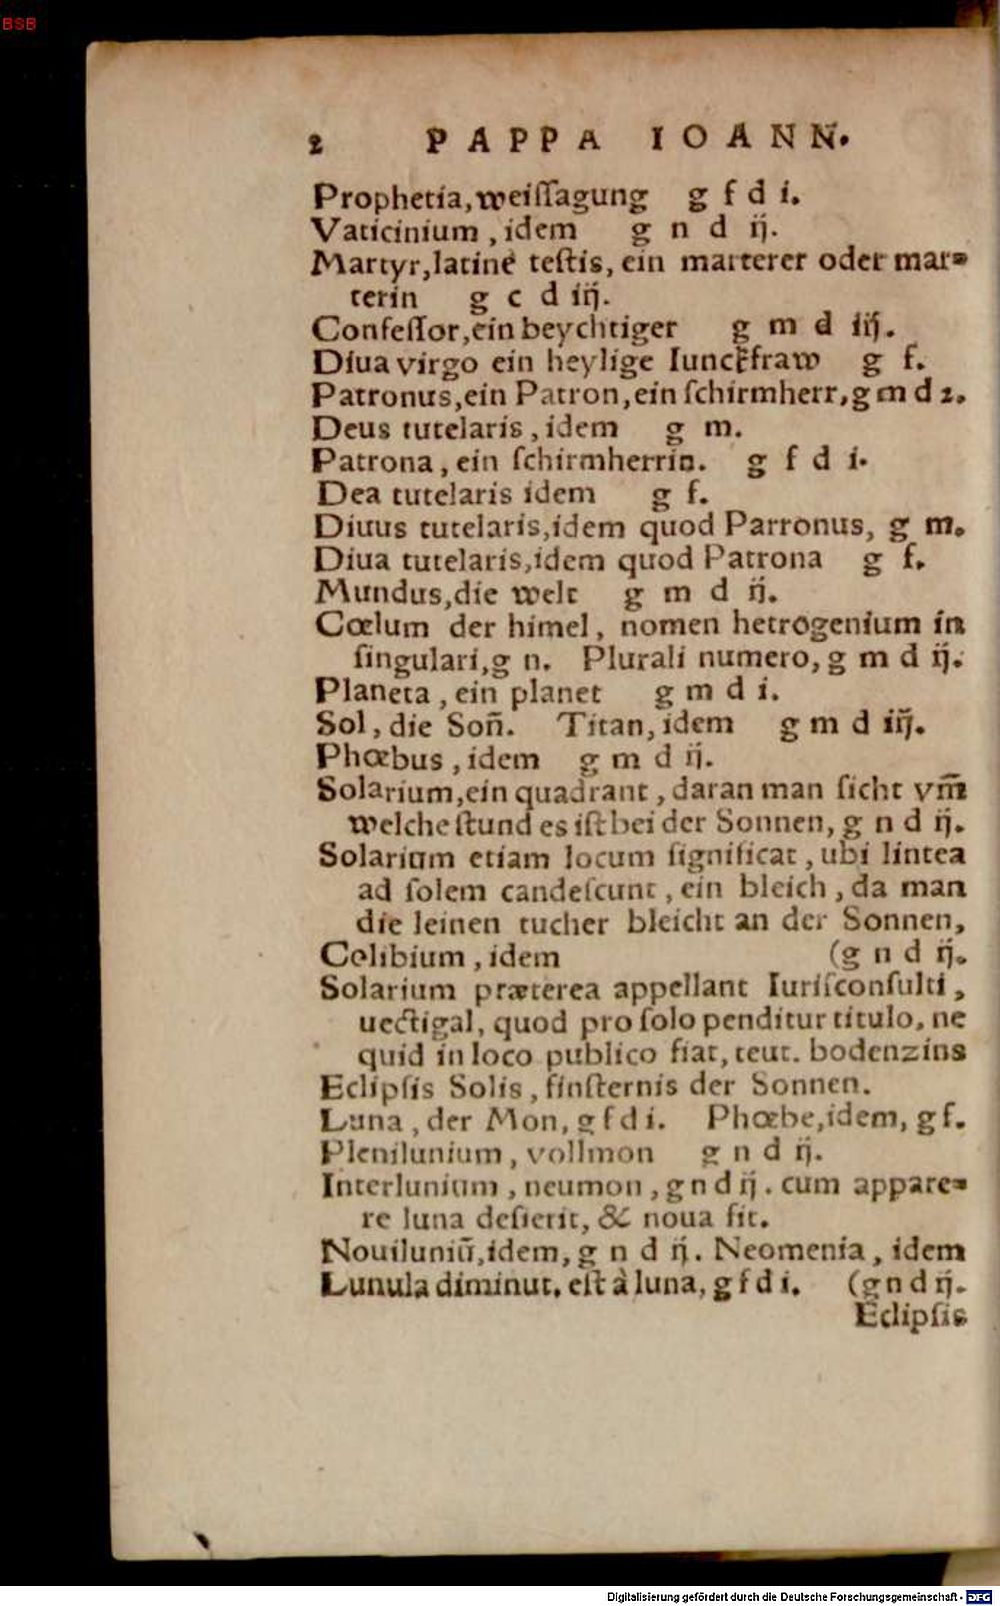 BSB
2 PAPPA IOANN.
Prophetia, weiſſagung g f d i.
Vaticinium, idem g n d ij.
Martyr, latine teſtis, ein marterer oder mar⸗
terin g c d iij.
Confeſſor, ein beychtiger g m d iij.
Diua virgo ein heylige Iunckfraw g f.
Patronus, ein Patron, ein ſchirmherr, g m d 2.
Deus tutelaris, idem g m.
Patrona, ein ſchirmherrin. g f d i.
Dea tutelaris idem g f.
Diuus tutelaris, idem quod Parronus, g m.
Diua tutelaris, idem quod Patrona g f.
Mundus, die welt g m d ij.
Cœlum der himel, nomen hetrogenium in
ſingulari, g n. Plurali numero, g m d ij.
Planeta, ein planet g m d i.
Sol, die Son̄. Titan, idem g m d iij.
Phœbus, idem g m d ij.
Solarium, ein quadrant, daran man ſicht vm̄
welche ſtund es iſt bei der Sonnen, g n d ij.
Solarium etiam locum ſignificat, ubi lintea
ad ſolem candeſcunt, ein bleich, da man
die leinen tucher bleicht an der Sonnen,
Colibium, idem (g n d ij.
Solarium præterea appellant Iuriſconſulti,
uectigal, quod pro ſolo penditur titulo, ne
quid in loco publico fiat, teut. bodenzins
Eclipſis Solis, finſternis der Sonnen.
Luna, der Mon, g f d i. Phœbe, idem, g f.
Plenilunium, vollmon g n d ij.
Interlunium, neumon, g n d ij. cum appare⸗
re luna deſierit, & noua fit.
Nouiluniū, idem, g n d ij. Neomenia, idem
Lunula diminut. eſt à luna, g f d i. (g n d ij.
Eclipſis
Digitalisierung gefördert durch die Deutsche Forschungsgemeinschaft - DFG